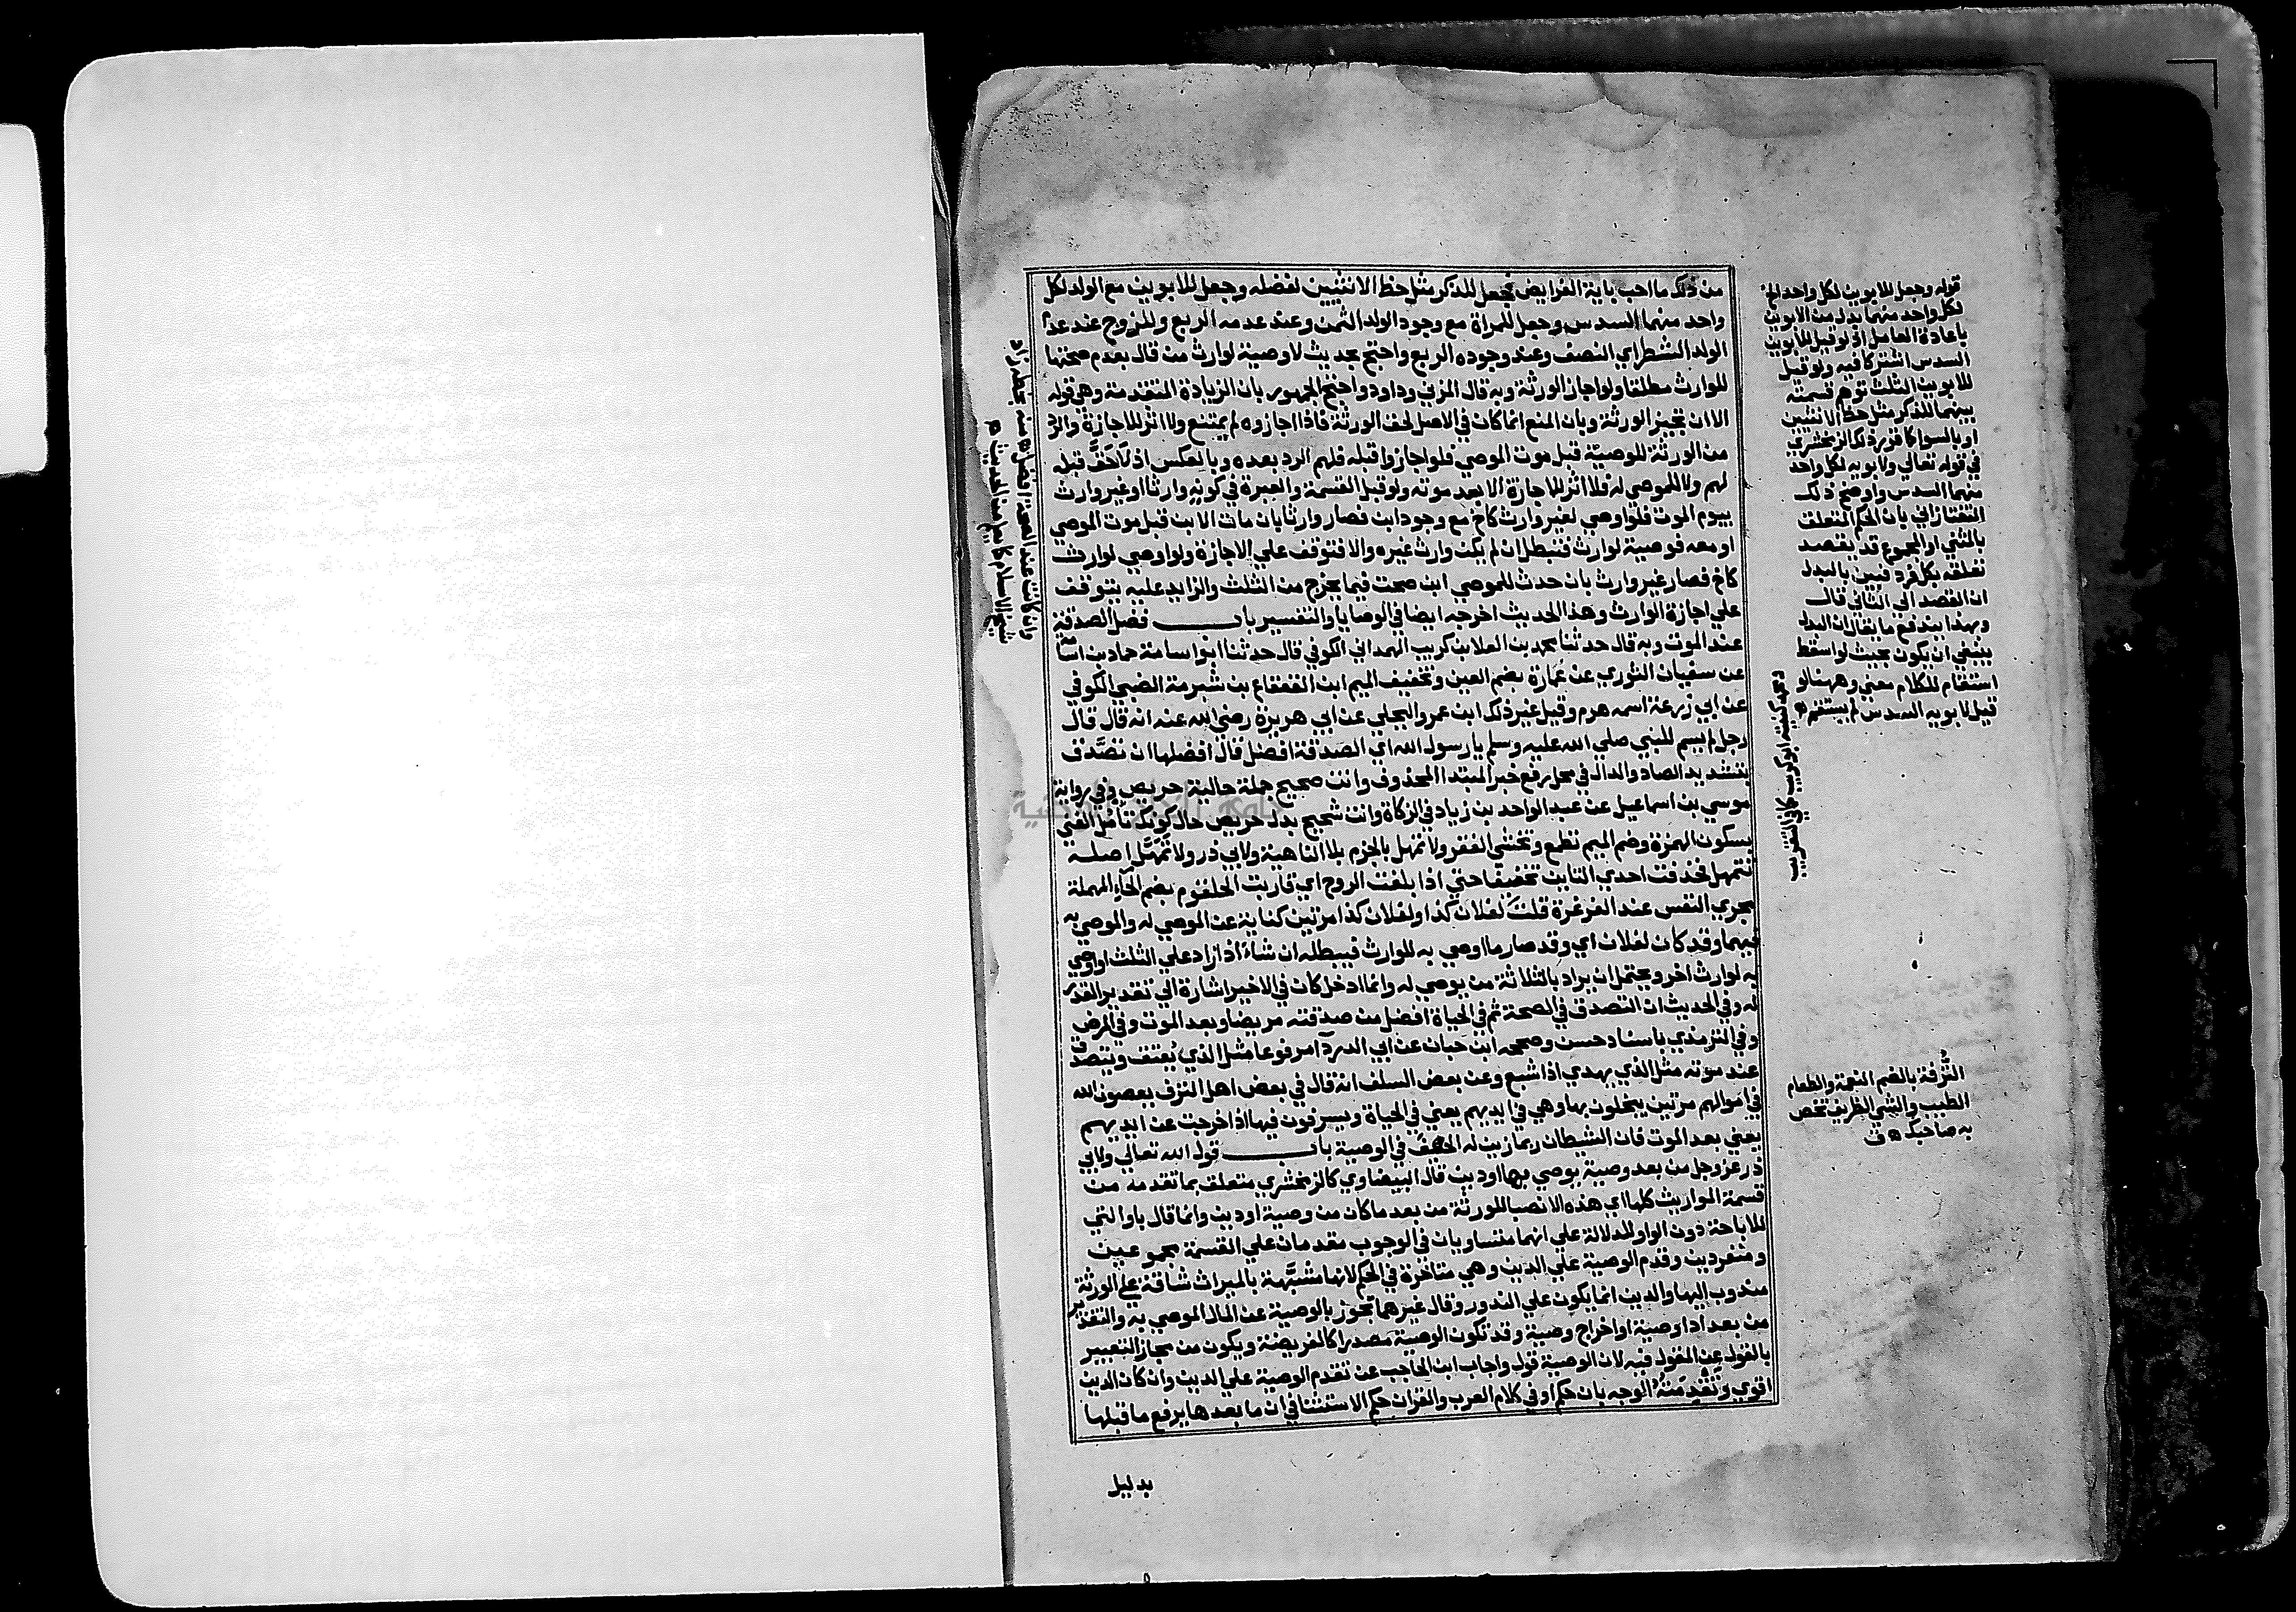 من ذلك ما احب باية الفرايض فجعل للذكر مثل حظ الانثيين لفضله وجعل للابوين مع الولد لكل
واحد منهما السدس وجعل للمراة مع وجود الولد الثمن وعند عدمه الربع وللزوج عند عدم
الولد الشطر اي النصف وعند وجوده الربع واحتج بحديث لا وصية لوارث من قال بعدم صحتها
للوارث مطلقا ولو اجاز الورثة وبه قال المزني وداود واحتج الجمهور بان الزيادة المتقدمة وهي قوله
الا ان تجيز الورثة وبان المنع انما كان في الاصل لحق الورثة فاذا اجازوه لم يمتنع ولا اثر للاجازة والرد
من الورثة للوصية قبل موت الموصي فلو اجازوا قبله فلهم الرد بعده وبالعكس اذ لا حق قبله
لهم ولا للموصي له فلا اثر للاجازة الا بعد موته ولو قبل القسمة والعبرة في كونه وارثا او غير وارث
بيوم الموت فلو اوصي لغير وارث كاخ مع وجود ابن فصار وارثا بان مات الابن قبل موت الموصي
او معه فوصية لوارث فتبطل ان لم يكن وارث غيره والا فتوقف علي الاجازة ولو اوصي لوارث
كاخ فصار غير وارث بان حدث للموصي ابن صحت فيما يخرج من الثلث والزايد عليه يتوقف
علي اجازة الوارث وهذا الحديث اخرجه ايضا في الوصايا والتفسير باب فضل الصدقة
عند الموت وبه قال حدثنا محمد بن العلا بن كريب الهمداني الكوفي قال حدثنا ابو اسامة حماد بن اسامة
عن سفيان الثوري عن عمارة بضم العين وتخفيف الميم ابن القعقاع بن شبرمة الضبي الكوفي
عن ابي زرعة اسمه هرم وقيل غير ذلك ابن عمرو البجلي عن ابي هريرة رضي الله عنه انه قال قال
رجل لم يسم للنبي صلي الله عليه وسلم يا رسول الله اي الصدقة افضل قال افضلها ان تصدق
بتشديد الصاد والدال في محل رفع خبر المبتدا المحذوف وانت صحيح جملة حالية حريص وفي رواية
موسي بن اسماعيل عن عبد الواحد بن زياد في الزكاة وانت شحيح بدل حريص حال كونك تامل الغني
بسكون الهمزة وضم الميم تطمع وتخشي الفقر ولا تمهل بالجزم بلا الناهية ولابي ذر ولا تمهل اصله
تتمهل فحذفت احدي التاين تخفيفا حتي اذا بلغت الروح اي قاربت الحلقوم بضم الحاء المهملة
مجري النفس عند الغرغرة قلت لفلان كذا ولفلان كذا مرتين كناية عن الموصي له والموصي به
فيهما وقد كان لفلان اي وقد صار ما اوصي به للوارث فيبطله ان شاء اذا زاد علي الثلث او اوصي
به لوارث اخر ويحتمل ان يراد بالثلاثة من يوصي له وانما ادخل كان في الاخير اشارة الي تقدير القدر
له وفي الحديث ان التصدق في الصحة ثم في الحياة افضل من صدقته مريضا وبعد الموت وفي المرض
وفي الترمذي باسناد حسن وصححه ابن حبان عن ابي الدردآ مرفوعا مثل الذي يعتق ويتصدق
عند موته مثل الذي يهدي اذا شبع وعن بعض السلف انه قال في بعض اهل الترف يعصون الله
في اموالهم مرتين يبخلون بها وهي في ايديهم يعني في الحياة ويسرفون فيها اذا خرجت عن ايديهم
يعني بعد الموت فان الشيطان ربما زين له الحيف في الوصية باب قول الله تعالي ولابي
ذر عز وجل من بعد وصية يوصي بها او دين قال البيضاوي كالزمخشري متعلق بما تقدمه من
قسمة المواريث كلها اي هذه الانصبا للورثة من بعد ما كان من وصية او دين وانما قال باو التي
للاباحة دون الواو للدلالة علي انهما متساويان في الوجوب مقدمان علي القسمة مجموعين
ومنفردين وقدم الوصية علي الدين وهي متاخرة في الحكم لانها مشبهة بالميراث شاقة علي الورثة
مندوب اليها والدين انما يكون علي الندور وقال غيرهما تجوز بالوصية عن المال الموصي به والتقدير
من بعد ادا وصية او اخراج وصية وقد تكون الوصية مصدرا كالفريضة ويكون من مجاز التعبير
بالقول عن المقول فيه لان الوصية قول واجاب ابن الحاجب عن تقدم الوصية علي الدين وان كان الدين
اقوي وتقدمته الوجه بان حكم او في كلام العرب والقران حكم الاستثنا في ان ما بعدها يرفع ما قبلها
بدليل
قوله وجعل للابوين لكل واحد الخ
لكل واحد منهما بدل من الابوين
باعادة العامل اذ لو قيل للابوين
السدس اشتركا فيه ولو قيل
للابوين الثلث توهم قسمته
بينهما للذكر مثل حظ الانثيين
او بالسوا كما قرر ذلك الزمخشري
في قوله تعالي ولابويه لكل واحد
منهما السدس واوضح ذلك
التفتازاني بان الحكم المتعلق
بالمثني او المجموع قد يقصد
تعلقه بكل فرد فبين بالبدل
ان القصد الي الثاني قال
وبهذا يندفع ما يقال ان البدل
ينبغي ان يكون بحيث لو اسقط
استقام للكلام معني وههنا لو
قيل لابويه السدس لم يستقم ه
كنيته ابو كريب كما في التقريب
الترفة بالضم النعمة والطعام
الطيب والشي الظريف تخص
به صاحبك ه ق